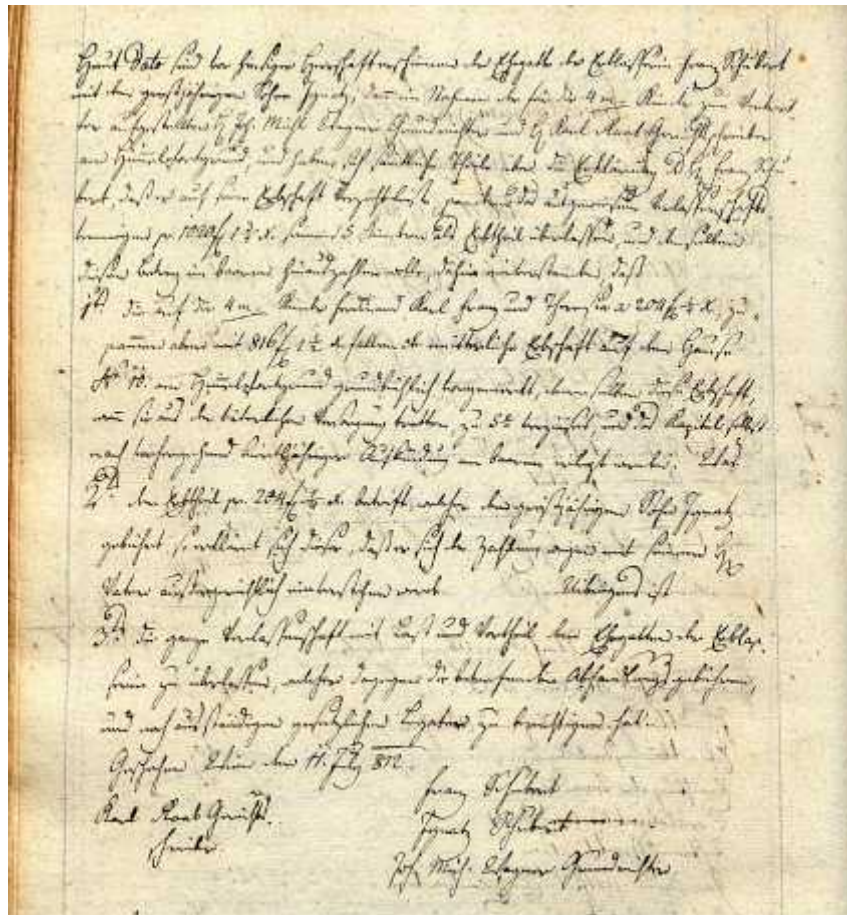 Heut Dato sind vor hiesiger Herrschaft erschienen der Ehegatte der Erblasserin Franz Schubert
mit den großjährigen Sohne Ignatz, dann im Nahmen der für die 4 m. Kinder zum Vertret
ter aufgestellten H. Joh. Michl Wagner Grundrichter und H. Karl Raab Gerichtschreiber
am Himmelpfortgrund, und haben sich sämtliche Theile über die Erklärung des H. Franz Schu
bert, daß er auf seine Erbschaft Verzicht leiste, sondern das ausgewiesene Verlassenschafts
vermögen pr. 1020 f 1 ½ x. seinen 5 Kindern als Erbtheil überlassen, und denselben
diesen Betrag im baaren hinauszahlen wolle, dahin einverstanden, daß
1tens die auf die 4 m. Kinder Ferdinand Karl Franz und Theresia a 204 f x, zu
sammen aber mit 816 f 1 ½ x. fallende mütterliche Erbschaft auf dem Hause
No 10. am Himmelpfortgrund grundbüchlich vorgemerkt, denenselben diese Erbschaft,
wann sie aus der väterlichen Versorgung tretten, zu 5 verzinset, und das Kapital selbst
nach vorhergehend vierteljähriger Aufkündung im baaren erlegt werde. Was
2tens den Erbtheil pr. 204 f x. betrift, welcher dem großjährigen Sohn Ignatz
gebührt, so erklärt sich dieser, daß er sich der Zahlung wegen mit seinem H.
Vater außergerichtlich einverstehen werde Uibrigens ist
3tens die ganze Verlassenschaft mit Last und Vortheil dem Ehegatten der Erblas-
serin zu überlassen, welcher dagegen die betreffenden Abhandlungsgebühren,
und noch ausständigen gesetzlichen Legaten zu berichtigen hat.
Geschehen Wien den 11. July 812.
Franz Schubert
Karl Raab Gerichts-
Ignatz Schubert
schreiber
Joh. Mich. Wagner Grundrichter